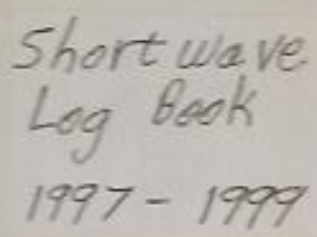 Short wave
Log Book
1997 - 1999